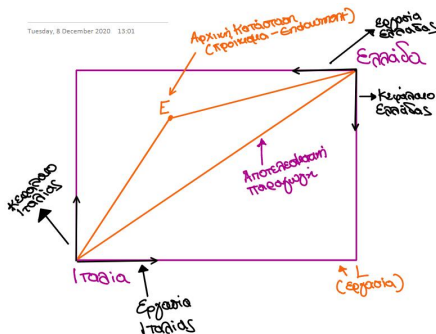 Tuesday, 8 December 2020    13:01
Αρχική Κατάσταση
(προίκισμα - Endowment)
εργασία
Ελλάδας
Ελλάδα
Κεφάλαιο
Ελλάδας
E
Αποτελεσματική
παραγωγή
Κεφάλαιο
Ιταλίας
Ιταλία
Εργασία
Ιταλίας
L
(εργασία)